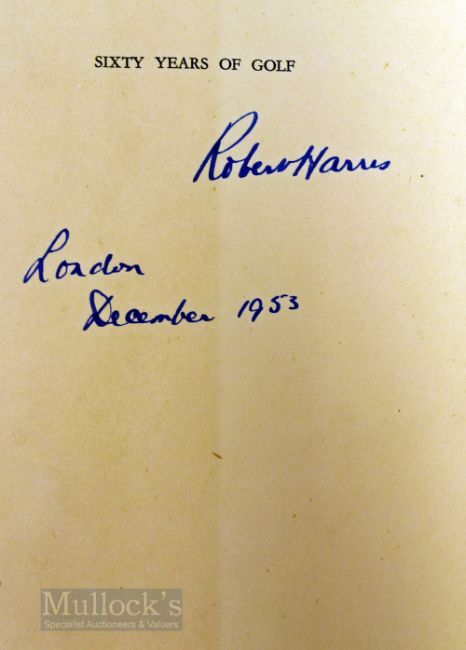 SIXTY YEARS OF GOLF
Robert Harris
London
December 1953
Mullock's
Specialist Auctioneers & Valuers